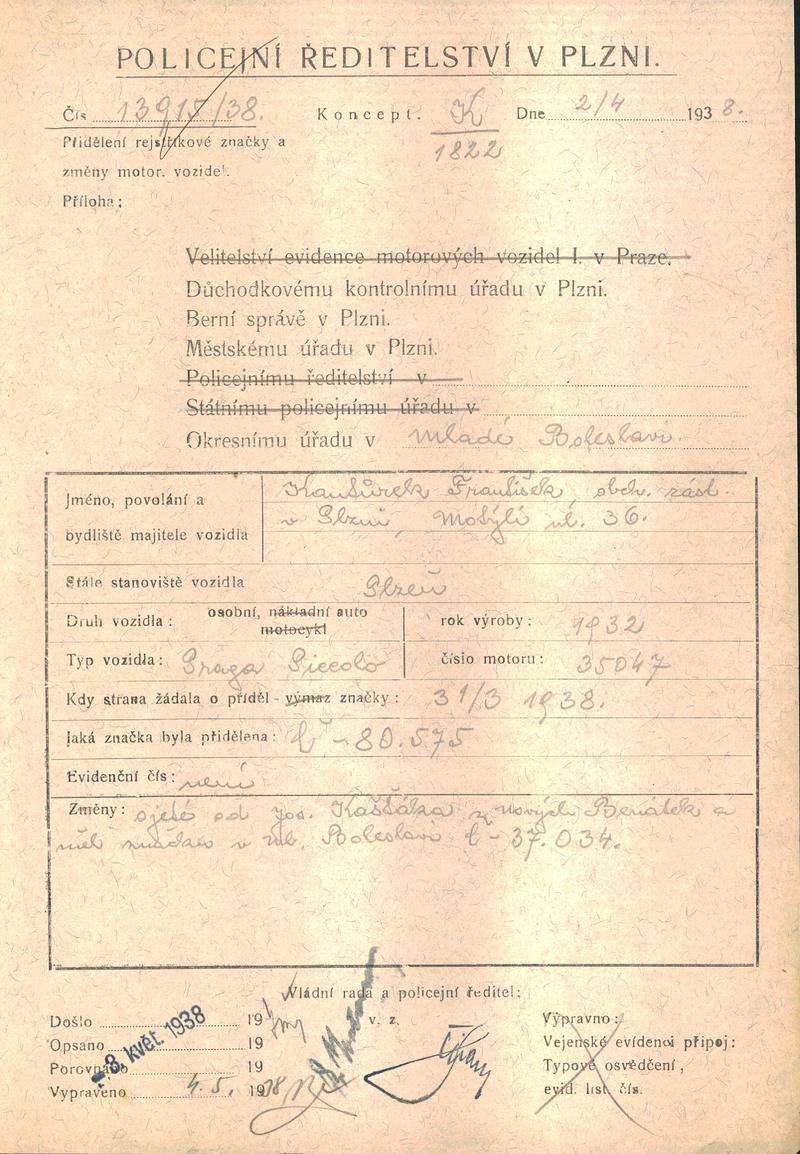 POLICEJNÍ ŘEDITELSTVÍ V PLZNI.
Čís. 13915/38. Koncept. K Dne 2/4 1938.
1822
Přidělení rejstříkové značky a
změny motor. vozidel.
Příloha:
Velitelství evidence motorových vozidel I. v Praze.
Důchodkovému kontrolnímu úřadu v Plzni.
Berní správě v Plzni.
Městskému úřadu v Plzni.
Policejnímu ředitelství v
Státnímu policejnímu úřadu v
Okresnímu úřadu v Mladé Boleslavi.
Jméno, povolání a František, obch. zást.
bydliště majitele vozidla v Plzni, Motýlí ul. 36.
Stálé stanoviště vozidla Plzeň
Druh vozidla: osobní, nákladní auto rok výroby: 1932
motocykl
Typ vozidla: Praga Piccolo číslo motoru: 35047
Kdy strana žádala o příděl - výmaz značky: 31/3 1938.
Jaká značka byla přidělena: Č - 80.575
Evidenční čís: není
Změny: ojeté od Jos. z Nových Benátek a
měl v Ml. Boleslavi Č - 37.034.
Vládní rada a policejní ředitel:
Došlo 19 v. z. Výpravno:
-3. květ 1938
Opsano 19 Vejenské evidenci připoj:
Porovnáno 19 Typové osvědčení,
Vypraveno 4.5. 1938 evid. list. čís.